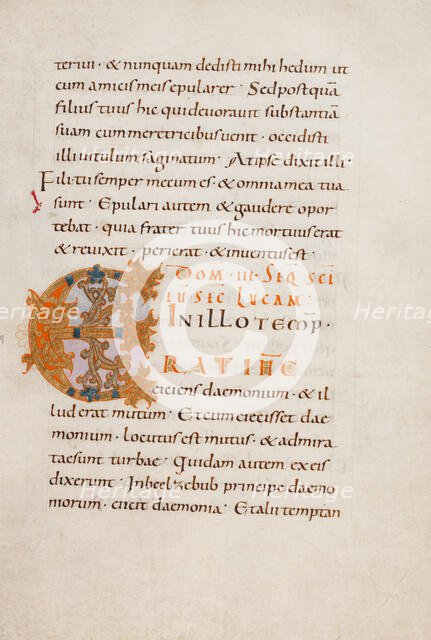 teriui · & nunquam dedisti mihi hedum ut
cum amicis meis epularer · Sed postquã
filius tuus hic qui deuorauit substantiã
suam cum meretricibus uenit · occidisti
illi uitulum saginatum · At ipse dixit illi ·
Fili · tu semper mecum es · & omnia mea tua
sunt · Epulari autem & gaudere opor
tebat · quia frater tuus hic mortuus erat
& reuixit · perierat & inuentus est ·
DOM · III · SEQ SCI
EU SEC LUCAM
IN ILLO TEMP ·
ERAT IHC
eiciens daemonium · & il
lud erat mutum · Et cum eiecisset dae
monium · locutus est mutus · & admira
tae sunt turbae · Quidam autem ex eis
dixerunt · In beelzebub principe daemo
niorum · eicit daemonia · Et alii temptan
Heritage
Heritage
Heritage
Heritage
Heritage
Heritage